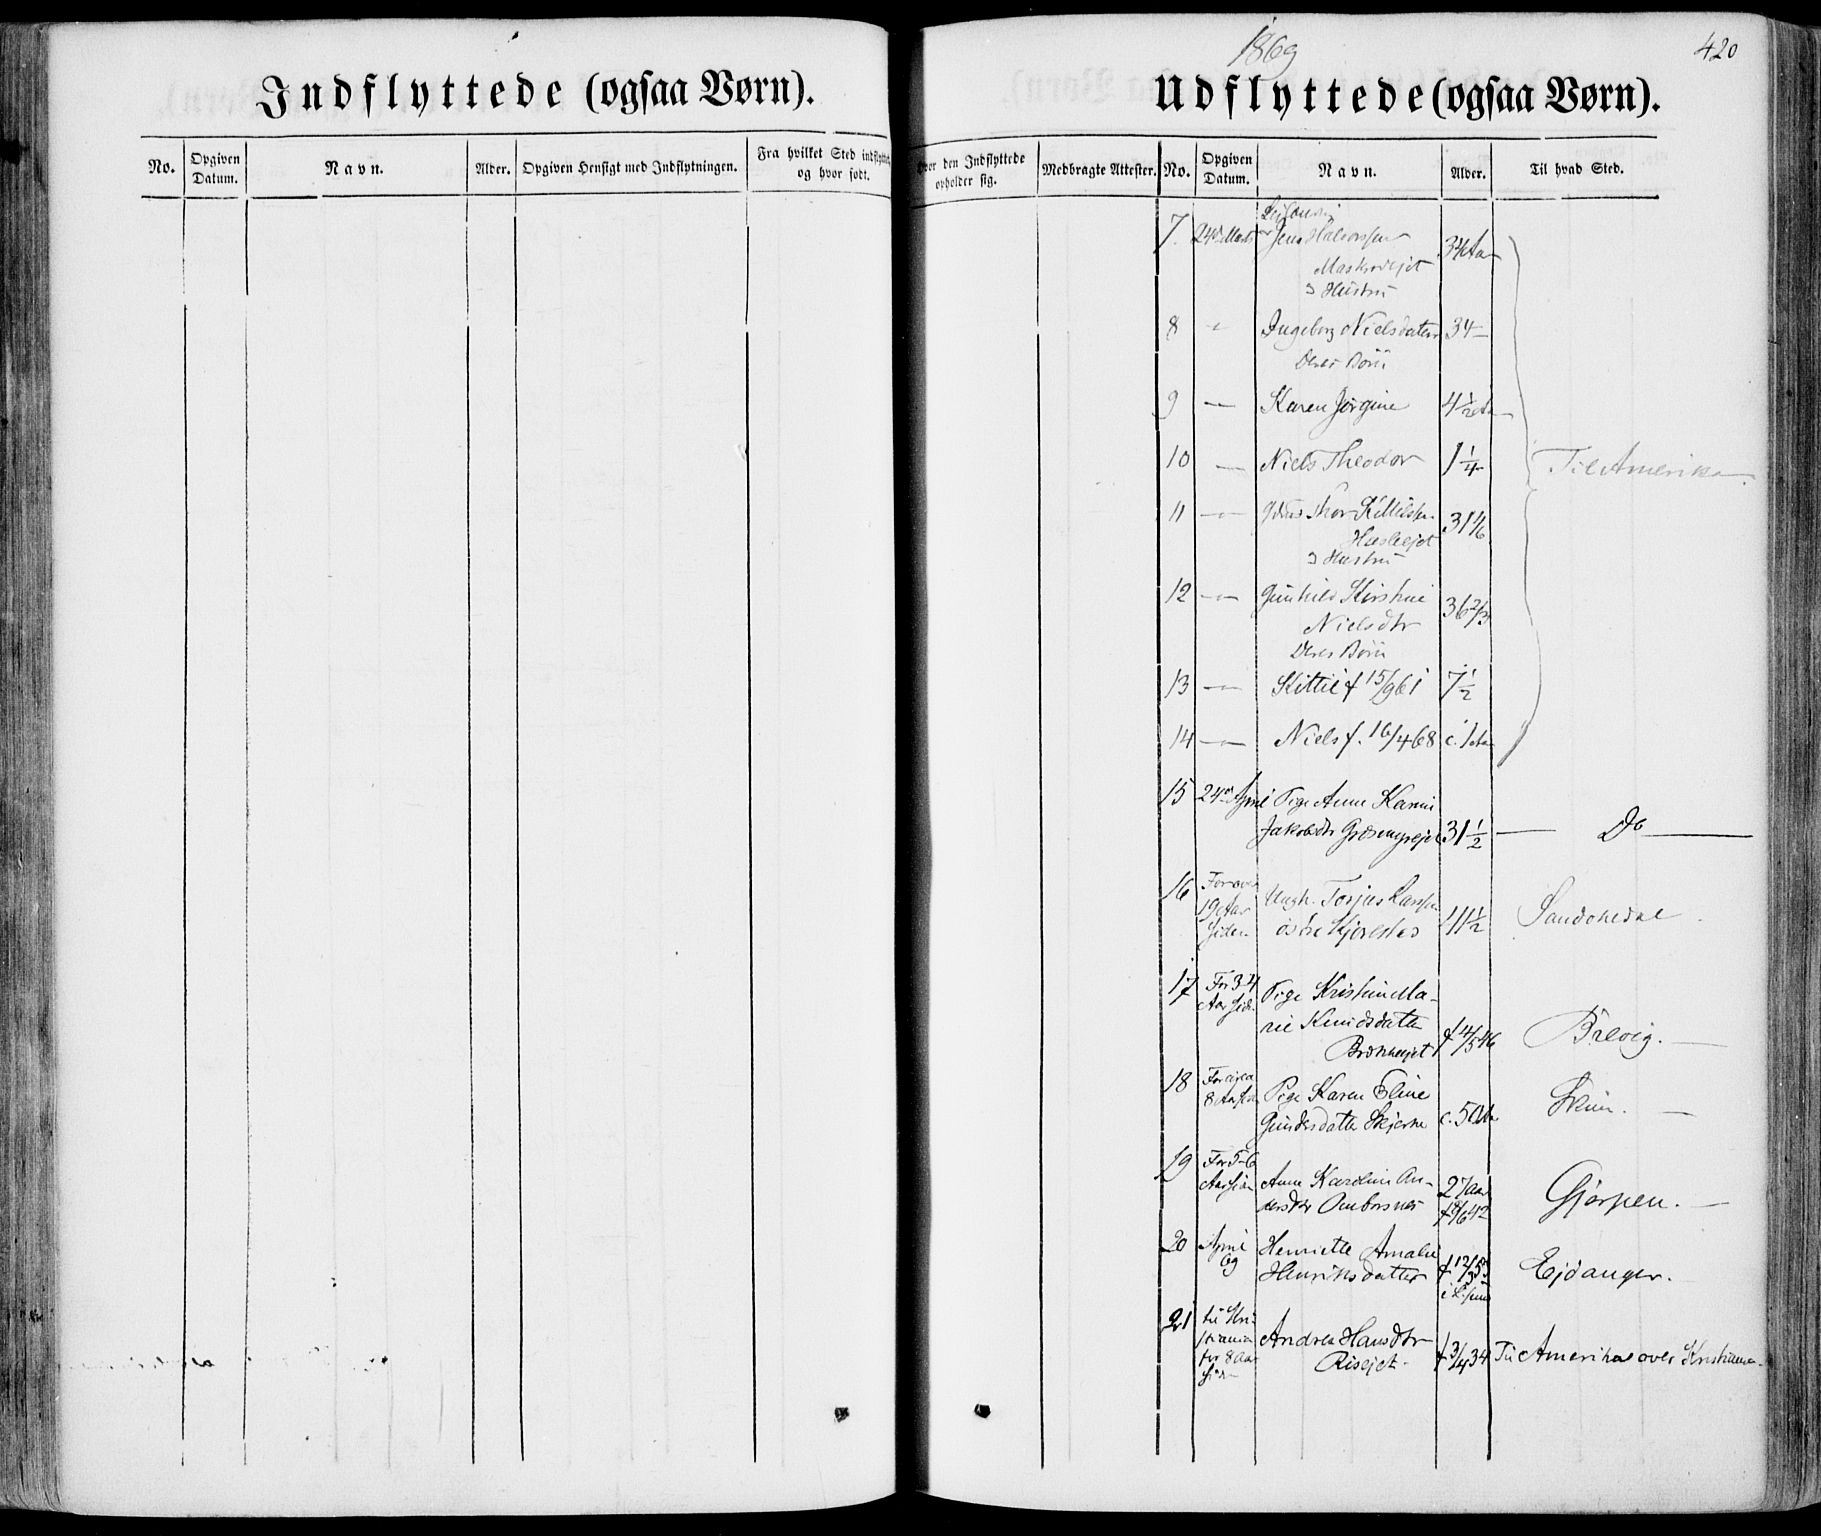 1869
420
Indflyttede (ogsaa Børn).
Udflyttede (ogsaa Børn).
No. Opgiven Datum. Navn. Alder. Opgiven Hensigt med Indflytningen. Fra hvilket Sted indflyttet, og hvor født.
hvor den Indflyttede opholder sig. Medbragte Attester. No. Opgiven Datum. Navn. Alder. Til hvad Sted.
7 24de Marts Jens Halvorsen 34 Aar
& Hustru
8 " Ingeborg Nielsdatter 34 –
Deres Børn
9 — Karen Jørgine 4½ Aar
10 — Niels Theodor 1¼ Til Amerika.
11 — Thor Kittilsen 31 1/6
& Hustru
12 — Gunhild Kirstine 36 2/3
Nielsdtr
Deres Børn
13 — Kittil f 15/9 61 7½
14 — Niels f. 16/4 68 c. 1 Aar
15 24de April Pige Anne Karine
Jakobsdtr 31½ — Do —
16 For over
19 Aar Ungk. Torjus Larsen
siden østre 11½
17 For 3-4 Pige Kristine Ma-
Aar siden rie Knudsdatter f 4/5 46 Brevig. —
18 For circa Pige Karen Eline
8 Aar siden Gundersdatter c. 50 Aar Skien. —
19 For 5-6 Anne Karoline An- 27 Aar
Aar siden dersdtr Ombosnes Gjerpen. —
20 April Henriette Amalie
69 Henriksdatter f 12/3 53 Ejdanger.
21 til Kri-
stiania Andrea Hansdtr
for 8 Aar Risejet. f 3/4 34 Til Amerika over Kristiania.
siden